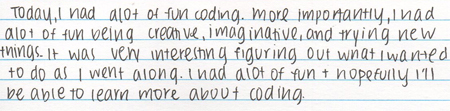 Today, I had alot of fun coding. more importantly, I had
alot of fun being creative, imaginative, and trying new
things. It was very interesting figuring out what I wanted
to do as I went along. I had alot of fun + hopefully I'll
be able to learn more about coding.